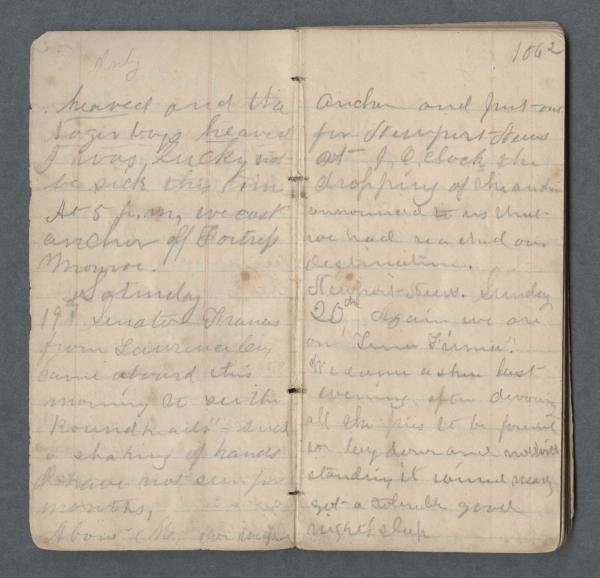 July
heaved and the
boys heaved
I was lucky not
be sick this time
At 5 p.m. we cast
anchor off Fortress
Monroe.
Saturday
19th Senator
from Lawrence Co
came aboard this
morning to see the
"Roundheads" - such
a shaking of hands
I have not seen for
months,
Above the
1862
anchor and put out
for Newport-News
at O,Clock the
dropping of the anchor
announced to us that
we had reached our
destination.
Newport-News. Sunday
20th Again we are
on "Terra Firma".
We came ashore last
evening after devouring
all the pies to be found
lay down and notwith
standing it rained
got a tolerable good
night's sleep